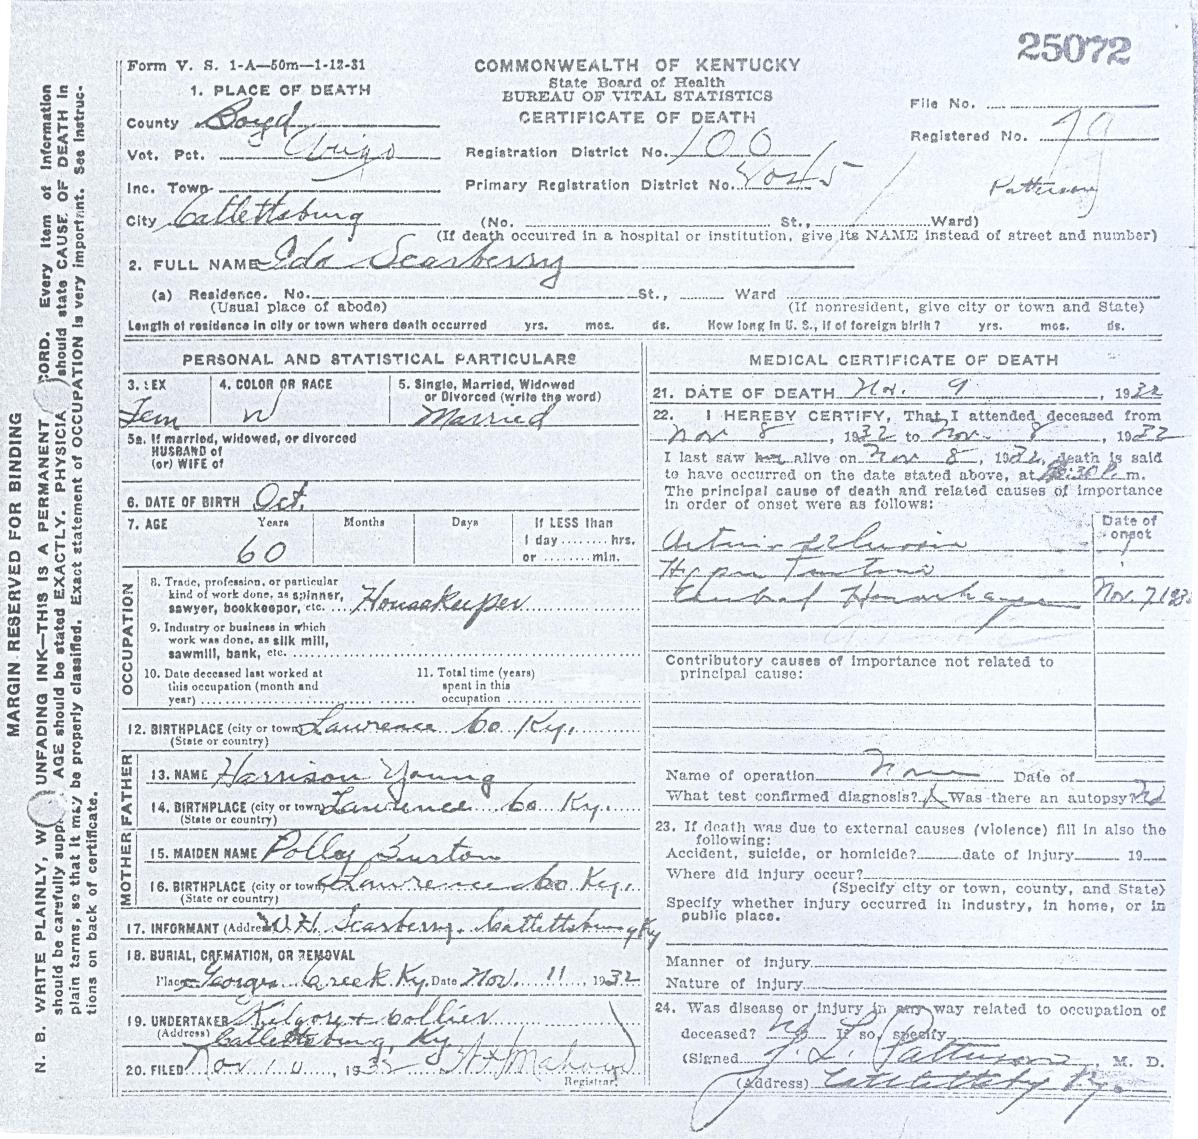 25072
Form V. S. 1-A—50m—1-12-31
COMMONWEALTH OF KENTUCKY
State Board of Health
BUREAU OF VITAL STATISTICS
CERTIFICATE OF DEATH
File No.
Registered No. 79
1. PLACE OF DEATH
County Boyd
Vot. Pct.
Registration District No. 100
Inc. Town
Primary Registration District No.
Patterson
City Catlettsburg (No. St., Ward)
(If death occurred in a hospital or institution, give its NAME instead of street and number)
2. FULL NAME Ida Scarberry
(a) Residence. No. St., Ward
(Usual place of abode) (If nonresident, give city or town and State)
Length of residence in city or town where death occurred yrs. mos. ds. How long in U. S., if of foreign birth? yrs. mos. ds.
PERSONAL AND STATISTICAL PARTICULARS
3. SEX
Fem
4. COLOR OR RACE
W
5. Single, Married, Widowed
or Divorced (write the word)
Married
5a. If married, widowed, or divorced
HUSBAND of
(or) WIFE of
6. DATE OF BIRTH Oct.
7. AGE Years Months Days If LESS than
60
1 day ........ hrs.
or ........ min.
OCCUPATION
8. Trade, profession, or particular
kind of work done, as spinner,
sawyer, bookkeeper, etc. Housekeeper
9. Industry or business in which
work was done, as silk mill,
sawmill, bank, etc.
10. Date deceased last worked at
this occupation (month and
year)
11. Total time (years)
spent in this
occupation
12. BIRTHPLACE (city or town) Lawrence Co Ky.
(State or country)
FATHER
13. NAME Harrison Young
14. BIRTHPLACE (city or town) Lawrence Co Ky.
(State or country)
MOTHER
15. MAIDEN NAME Polley Burton
16. BIRTHPLACE (city or town) Lawrence Co Ky.
(State or country)
17. INFORMANT (Address) W. H. Scarberry. Catlettsburg Ky
18. BURIAL, CREMATION, OR REMOVAL
Place Georges Creek Ky. Date Nov. 11, 1932
19. UNDERTAKER Kilgore + Collier
(Address) Catlettsburg, Ky
20. FILED Nov 10, 1932
Registrar
MEDICAL CERTIFICATE OF DEATH
21. DATE OF DEATH Nov. 9, 1932
22. I HEREBY CERTIFY, That I attended deceased from
Nov 8, 1932 to Nov. 8, 1932
I last saw her alive on Nov 8, 1932, death is said
to have occurred on the date stated above, at :30 P. m.
The principal cause of death and related causes of importance
in order of onset were as follows:
Date of
onset
Hyper Tention
Cerebral Hemorhage Nov. 7 1932
Contributory causes of importance not related to
principal cause:
Name of operation None Date of
What test confirmed diagnosis? X Was there an autopsy? No
23. If death was due to external causes (violence) fill in also the
following:
Accident, suicide, or homicide? date of injury 19
Where did injury occur?
(Specify city or town, county, and State)
Specify whether injury occurred in industry, in home, or in
public place.
Manner of injury
Nature of injury
24. Was disease or injury in any way related to occupation of
deceased? No If so, specify
(Signed J. L. Patterson, M. D.
(Address) Catlettsbg Ky.
MARGIN RESERVED FOR BINDING
N. B. WRITE PLAINLY, W UNFADING INK—THIS IS A PERMANENT CORD. Every item of information
should be carefully supp AGE should be stated EXACTLY. PHYSICIA should state CAUSE OF DEATH in
plain terms, so that it may be properly classified. Exact statement of OCCUPATION is very important. See instruc-
tions on back of certificate.